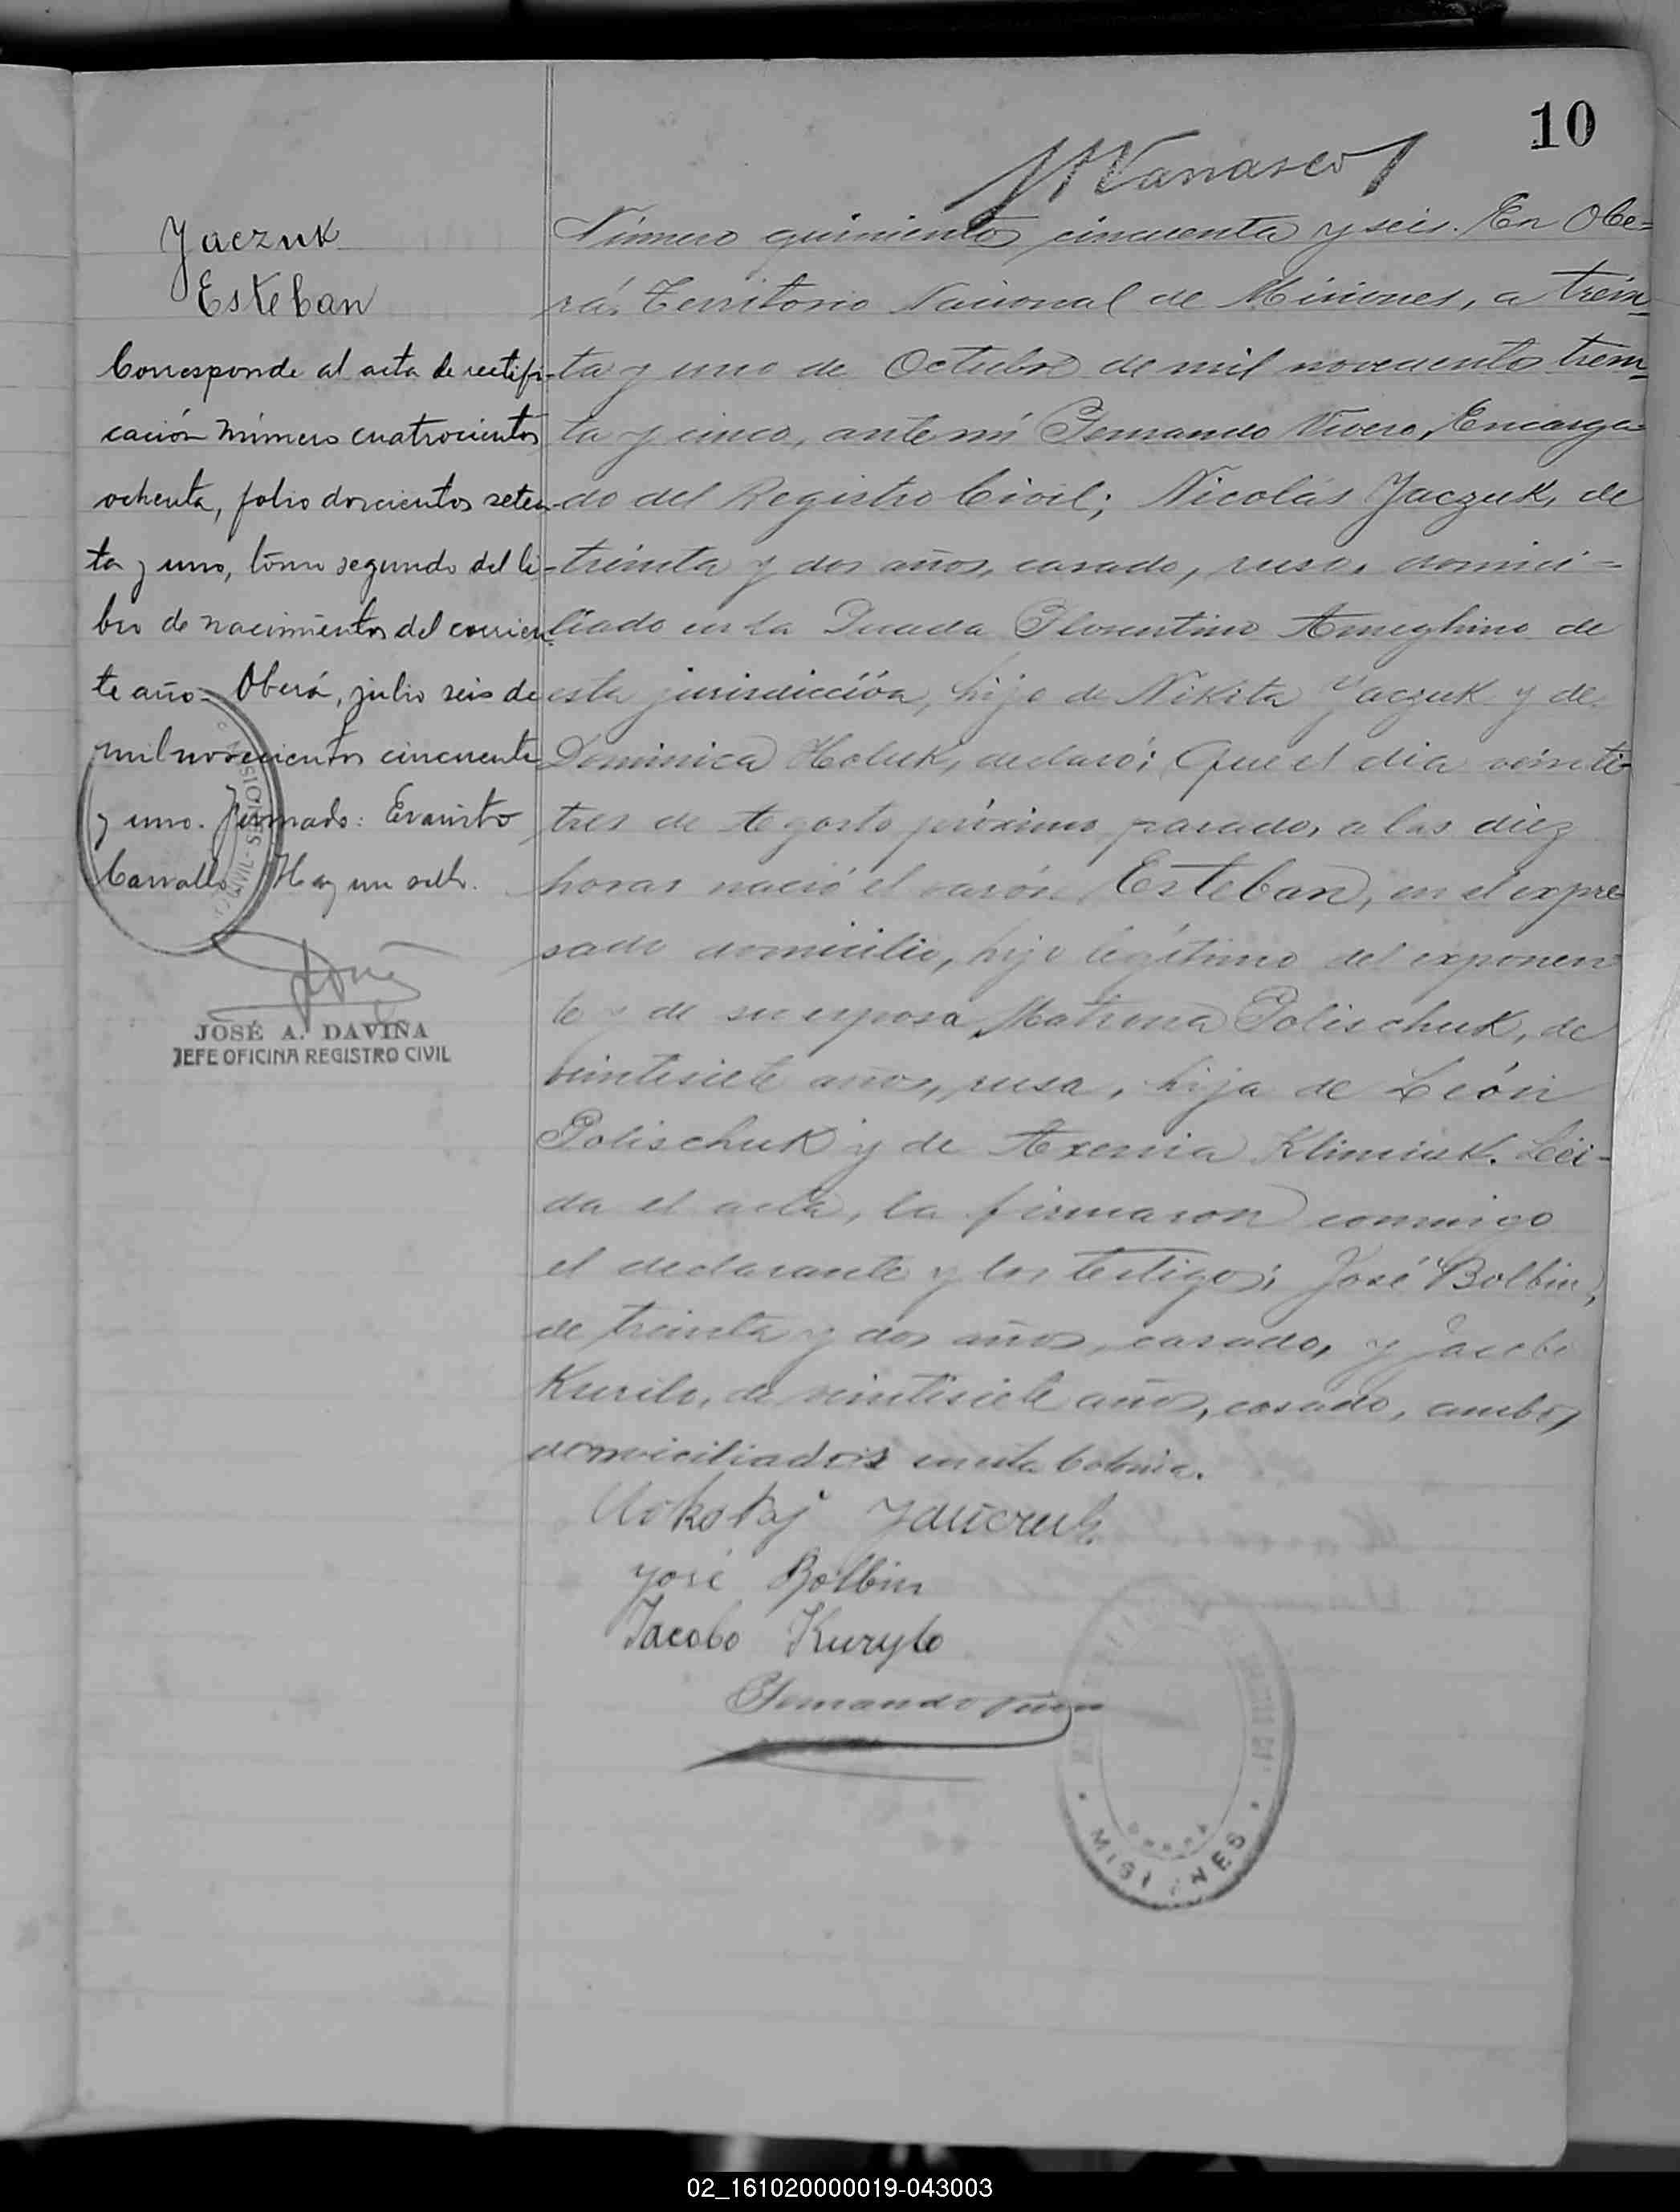 10
Yaczuk
Esteban
Corresponde al acta de rectifi-
cación número cuatrocientos
ochenta, folio doscientos seten-
ta y uno, tomo segundo del li-
bro de nacimientos del corrien-
te año. Oberá, julio seis de
mil novecientos cincuenta
y uno. Firmado: Evaristo
Carvallo. Hay un sello.
MISIONES
JOSÉ A. DAVIÑA
JEFE OFICINA REGISTRO CIVIL
Número quinientos cincuenta y seis. En Obe=
rá, Territorio Nacional de Misiones, a trein=
ta y uno de Octubre de mil novecientos trein=
ta y cinco, ante mí Fernando Vivero, Encarga=
do del Registro Civil; Nicolás Yaczuk, de
treinta y dos años, casado, ruso, domici=
liado en la Florentino Ameghino de
esta jurisdicción, hijo de Nikita Yaczuk y de
Dominica Holuk, declaró: Que el día veinti-
tres de Agosto próximo pasado, a las diez
horas nació el varón Esteban, en el expre
sado domicilio, hijo legítimo del exponen
te y de su esposa Matrona Polischuk, de
veintisiete años, rusa, hija de León
Polischuk y de Axenia Klimiuk. Leí-
da el acta, la firmaron conmigo
el declarante y los testigos: José Bolbin,
de treinta y dos años, casado, y Jacobo
Kurilo, de veintisiete años, casado, ambos
domiciliados en esta Colonia.
José Bolbin
Jacobo Kurylo
Fernando Vivero
MISIONES
02_161020000019-043003